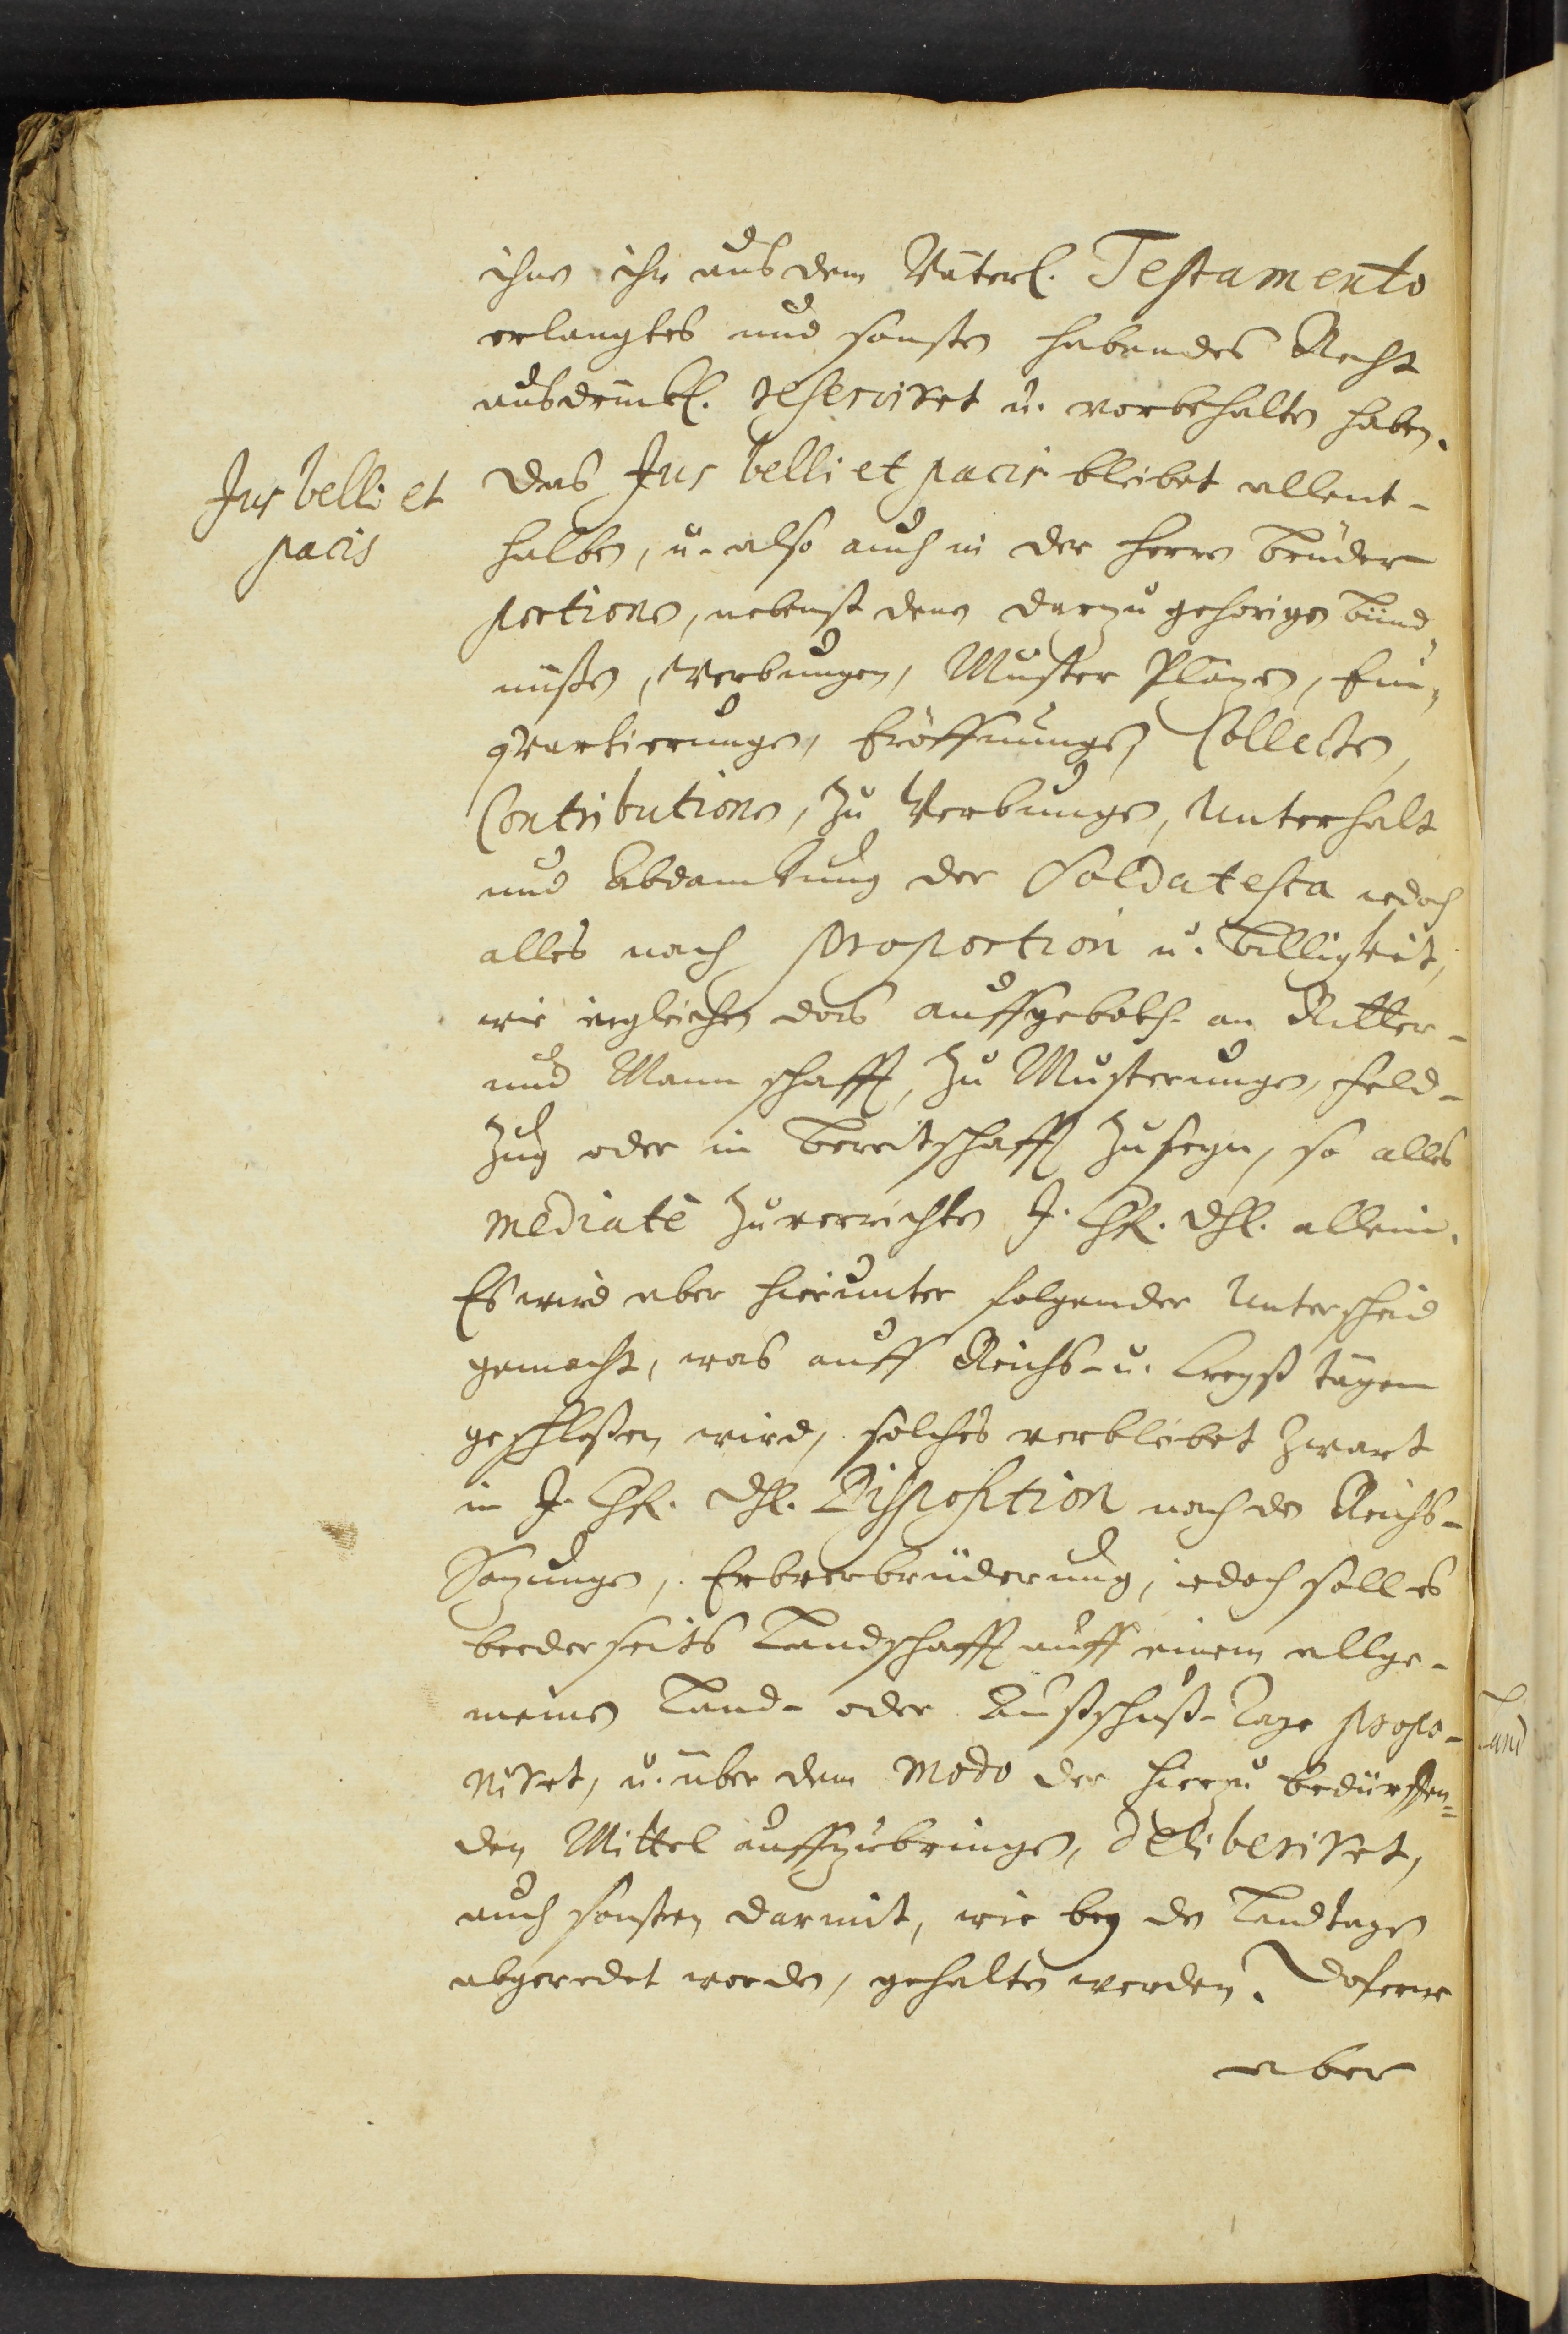 ihne ihr aus dem Väterl. Testamento
erlangtes und sonsten habendes Recht
ausdruckl. reserviret u. vorbehalten haben.
Jus belli et
pacis
Das Jus belli et pacis bleibet allent-
halben, u. also auch in der Herren Brüder
portionen, nebenst denen darzu gehörigen Bünd-
nüßen, Werbungen, Muster Pläzen, Ein-
qvartierungen, Eröffnungen, Collecten,
Contributionen, zu Werbungen, Unterhalt
und Abdankung der Soldatesca iedoch
alles nach proportion u. Billigkeit,
wie ingleichen das auffgeboth an Ritter-
und Mannschafft, zu Musterungen, Feld-
Zug oder in Bereitschafft zu seyn, so alles
mediatè zuverrichten J. Chf. Dhl. allein.
Es wird aber hierunter folgender Unterscheid
gemacht, was auff Reichs- u. Creyß tägen
geschloßen wird, solches verbleibet zwart
in J. Chf. Dhl. Disposition nach den Reichs-
Sazungen, Erbverbrüderung, iedoch soll es
beederseits Landschafft auff einem allge-
meinen Land- oder Außschuß-Tage propo-
niret, u. über dem modo der hierzu bedürffen-
den Mittel auffzubringen, deliberiret,
auch sonsten darmit, wie bey den Landtagen
abgeredet worden, gehalten werden. Doferne
aber
Land